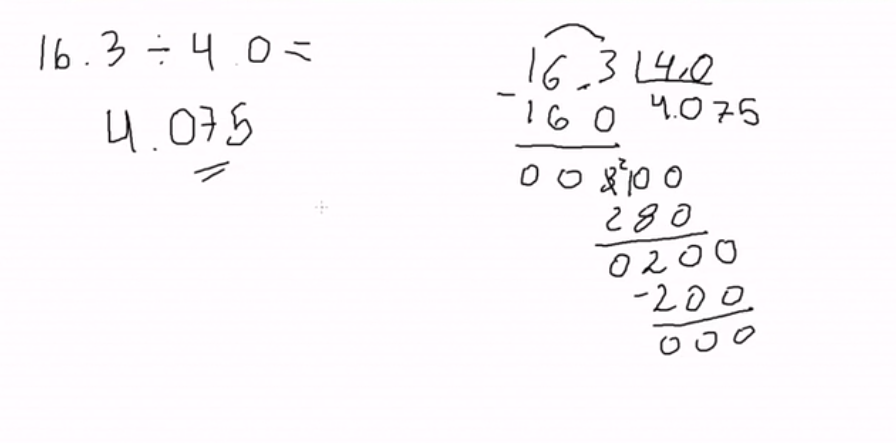 16.3 ÷ 4.0 =
4.075
16.3 4.0
- 160 4.075
00 3²100
280
0200
-200
000